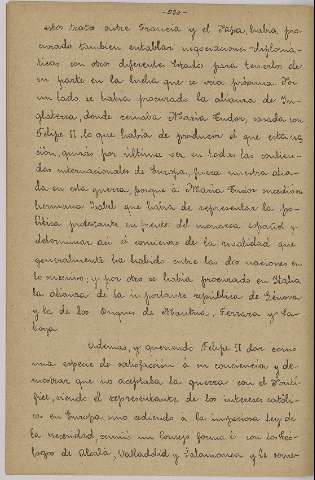 estos tratos entre Francia y el Papa, había pro-
curado tambien entablar negociaciones diplomá-
ticas con otros diferentes Estados para tenerlos de
su parte en la lucha que se veía próxima. Por
un lado se había procurado la alianza de In-
glaterra, donde reinaba María Tudor, casada con
Felipe II, lo que había de producir el que esta oca-
sión, quizás por última vez en todas las contien-
das internacionales de Europa, fuera nuestra alia-
da en esta guerra, porque á María Tudor sucedió su
hermana Isabel que había de representar la po-
lítica protestante en frente del monarca español y
determinar así el comienzo de la rivalidad que
generalmente ha habido entre las dos naciones en
lo sucesivo; y por otro se había procurado en Italia
la alianza de la importante república de Génova
y la de los Duques de Mantua, Ferrara y Sa-
boya.
Además, y queriendo Felipe II dar como
una especie de satisfacción á su conciencia y de-
mostrar que no aceptaba la guerra con el Pontí-
fice, siendo el representante de los intereses católi-
cos en Europa sino cediendo á la imperiosa ley de
la necesidad reunió un Consejo formado con los teó-
logos de Alcalá, Valladolid y Salamanca y les some-